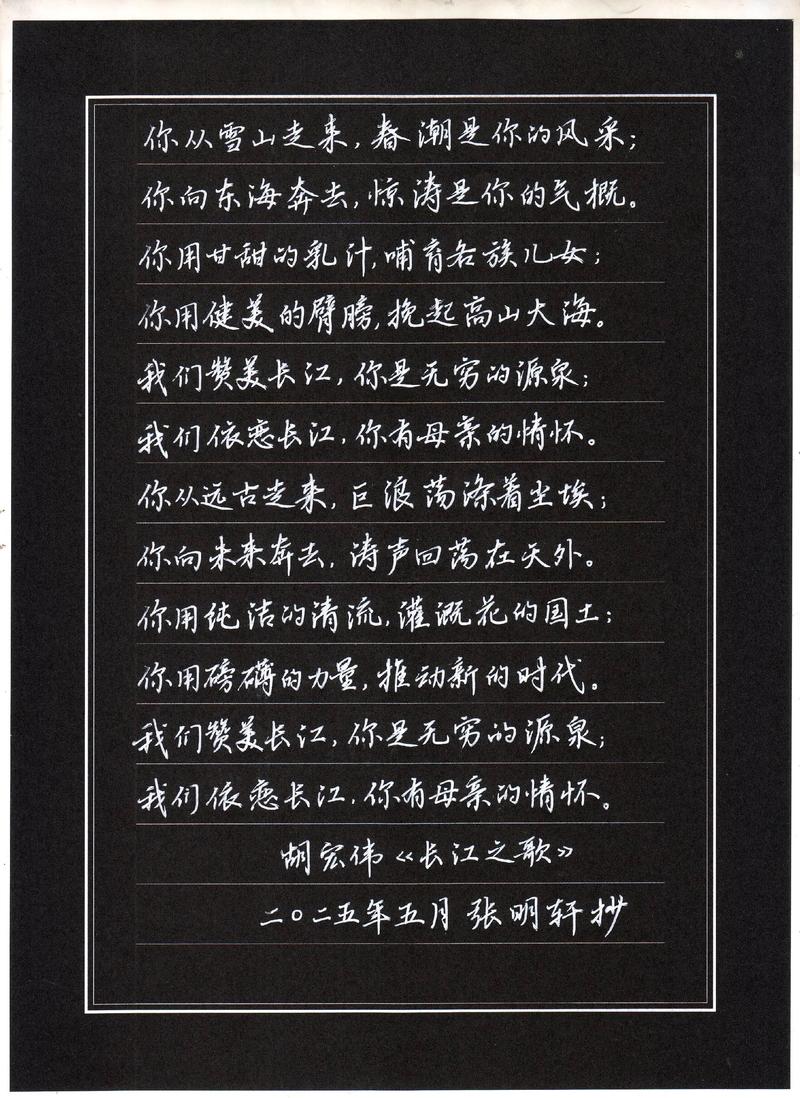 你从雪山走来，春潮是你的风采；
你向东海奔去，惊涛是你的气概。
你用甘甜的乳汁，哺育各族儿女；
你用健美的臂膀，挽起高山大海。
我们赞美长江，你是无穷的源泉；
我们依恋长江，你有母亲的情怀。
你从远古走来，巨浪荡涤着尘埃；
你向未来奔去，涛声回荡在天外。
你用纯洁的清流，灌溉花的国土；
你用磅礴的力量，推动新的时代。
我们赞美长江，你是无穷的源泉；
我们依恋长江，你有母亲的情怀。
胡宏伟《长江之歌》
二〇二五年五月 张明轩抄